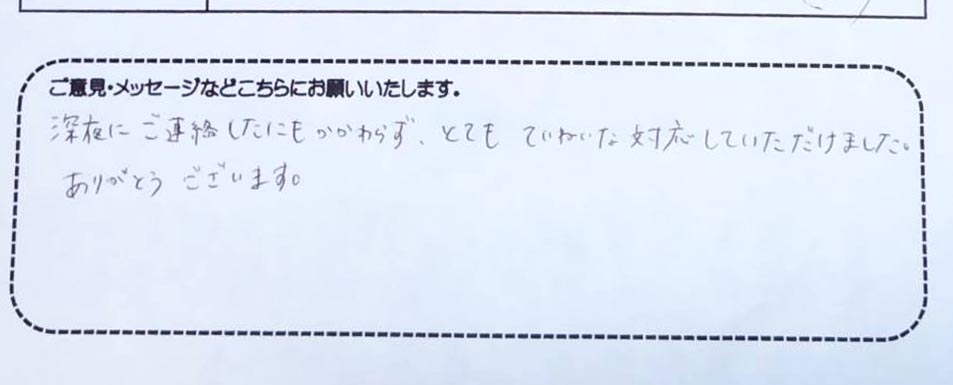 ご意見・メッセージなどこちらにお願いいたします。
深夜にご連絡したにもかかわらず、とても ていねいな対応していただけました。
ありがとう ございます。